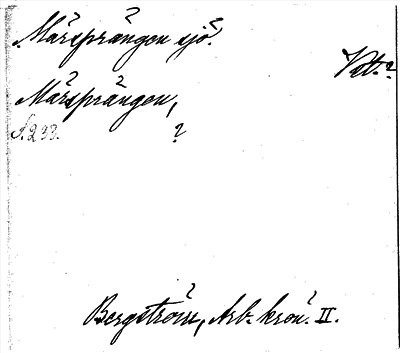 Mårsprången sjö.
Vat.?
Mårsprången,
S. 233. ?
Bergström, Arb. krön. II.